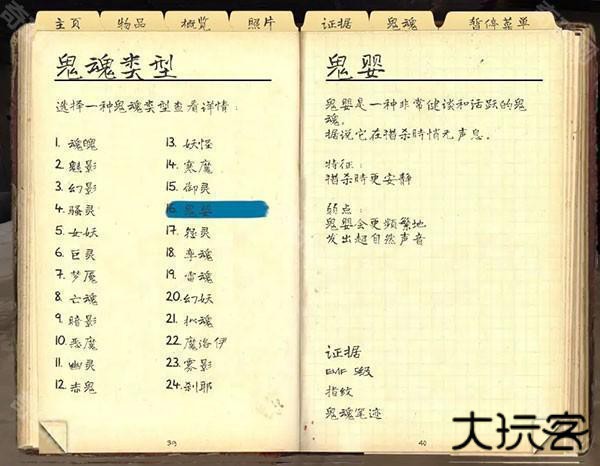 主页 物品 概览 照片 证据 鬼魂 暂停菜单
鬼魂类型
选择一种鬼魂类型查看详情:
1. 魂魄
2. 魅影
3. 幻影
4. 骚灵
5. 女妖
6. 巨灵
7. 梦魇
8. 亡魂
9. 暗影
10. 恶魔
11. 幽灵
12. 赤鬼
13. 妖怪
14. 寒魔
15. 御灵
16. 鬼婴
17. 怨灵
18. 孪魂
19. 雷魂
20. 幻妖
21. 拟魂
22. 魔洛伊
23. 雾影
24. 刹耶
39
鬼婴
鬼婴是一种非常健谈和活跃的鬼
魂。
据说它在猎杀时悄无声息。
特征:
猎杀时更安静
弱点:
鬼婴会更频繁地
发出超自然声音
证据
EMF 5级
指纹
鬼魂笔迹
40
大玩客